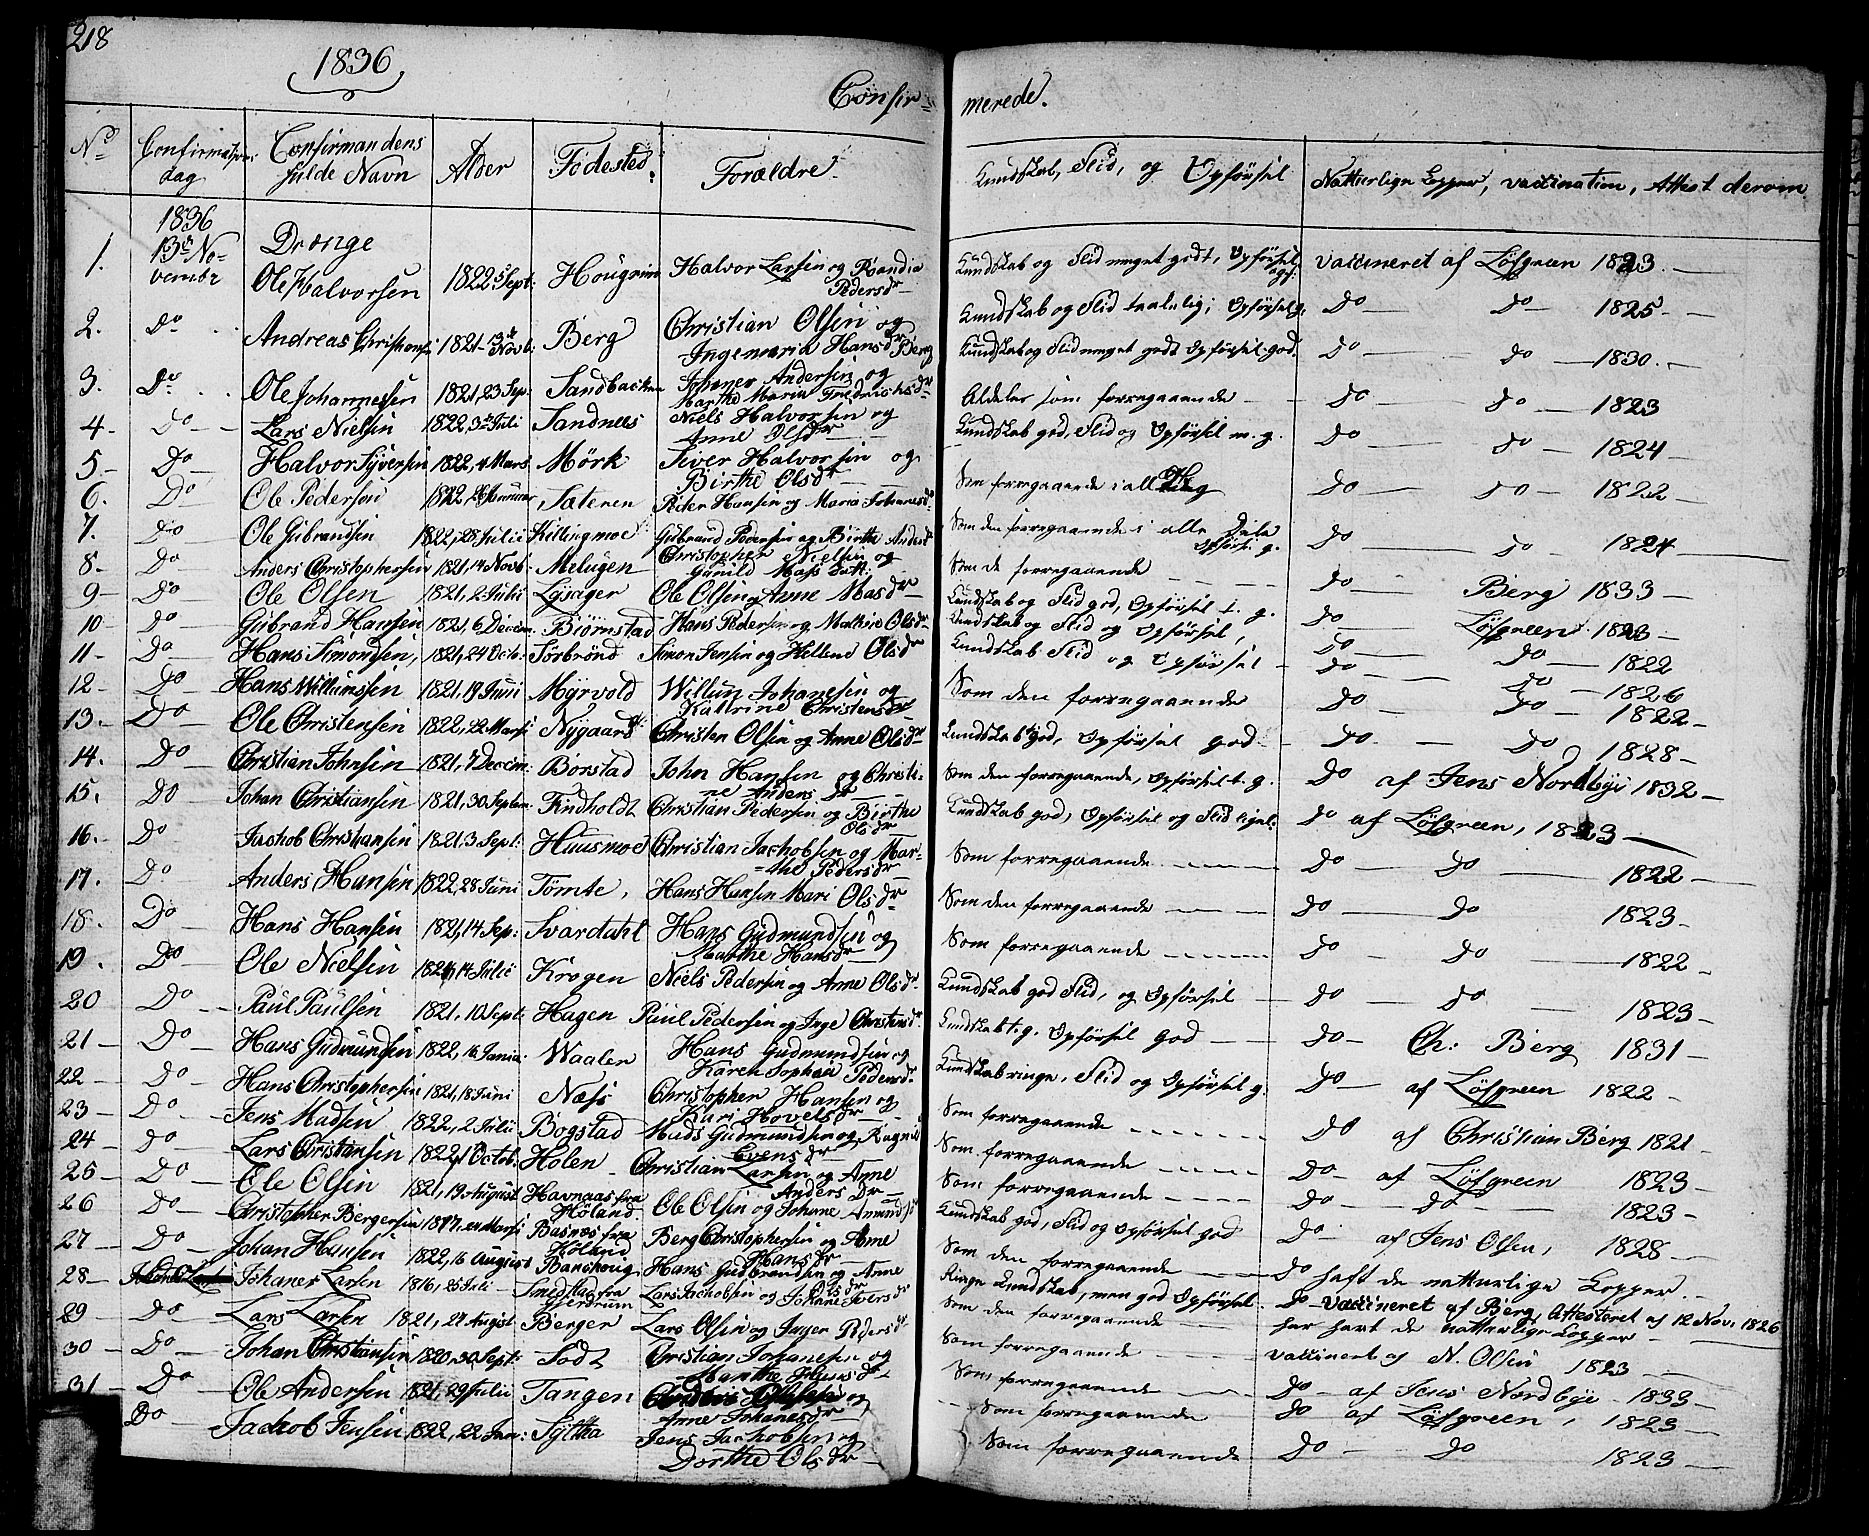 218
1836
Confir-
merede.
No
Confirmations dag
Confirmandens fulde Navn
Alder
Fødested
Forældre
Kundskab, Flid, og Opførsel
Natturlige Kopper, vaccination, Attest derom
1836
13de November
Drenge
1. Ole Halvorsen 1822 5 Sept: Halvor Larsen og Randia Pedersdr Kundskab og Flid meget godt, Opførsel vaccineret af Løfgreen 1823
2. Do Andreas Christiansen 1821 Novb: Berg Christian Olsen og Ingemaria Hansdr Berg Kundskab og Flid taalelig; Opførsel g. Do Do 1825
3. Do Ole Johannessen 1821, 23 Sep: Sandbacken Johanes Andersen og Marthe Maria Fredrichsdr Kundskab og Flid meget godt Opførsel god. Do Do 1830
4 Do Lars Nielsen 1822, 3 Juli Sandnees Niels Halvorsen og Anne Olsdr Aldeles som forregaaende Do Do 1823
5 Do Halvor Syversen 1822, 4 Mars Mörk Siver Halvorsen og Birthe Olsdr Kundskab god, Flid og Opførsel m. g. Do Do 1824
6. Do Ole Pedersen 1822 Sæteren Peder Hansen og Maria Johanesdr Som forregaaende i all Do Do 1822
7. Do Ole Gubrandsen 1822, 28 Julii Killingmoe Gubrand Pedersen og Birthe Andersdr Som den forregaaende i alle Dele Opførs: g. Do Do 1824
8 Do Anders Christophersen 1821, 14 Novb: Melugen Christopher Nielsen og Gunild Mass Datt: Som de forregaaende Do Berg 1833
9 Do Ole Olsen 1821, 2 Julii Ole Olsen og Anne Masdr Kundskab og Flid god, Opførsel t. g. Do Løfgreen 1823
10 Do Gubrand Hansen 1821, 6 Decem. Biørnstad Hans Pedersen og Mathie Olsdr Kundskab og Flid og Opførsel, Do Do 1822
11 Do Hans Simonsen, 1821, 24 Octo: Sørbrønd Simon Jensen og Hellene Olsdr Kundskab Flid og Opførsel Do Do 1826
12 Do Hans Willumsen 1821, 19 Juni Myrvold Willum Johanesen og Kattrine Christensdr Som den forregaaende Do Do 1822
13. Do Ole Christensen 1822, 22 Marsi Nygaard Christen Olsen og Anne Olsdr Kundskab god, Opførsel god Do Do 1828
14. Do Christian Johnsen 1821, 7 Decem: Børstad John Hansen og Christine Anders dr Som den forregaaende, Opførsel t. g. Do af Jens Nordbye 1832
15. Do Johan Christiansen 1821, 30 Septem. Findholdt Christian Pedersen og Birthe Olsdr Kundskab god, Opførsel og Flid Do af Løfgreen, 1823
16. Do Jachob Christiansen 1821 3 Sept: Huusmoe Christian Jachobsen og Marthe Pedersdr Som forregaaende Do Do 1822
17. Do Anders Hansen 1822, 28 Juni Tømte, Hans Hansen Mari Olsdr Som den forregaaende Do Do 1823
18. Do Hans Hansen 1821, 14 Sep: Svardahl Hans Gudmundsen og Marthe Hansdr Som forregaaende Do Do 1822
19. Do Ole Nielsen 14 Julii Krogen Niels Pedersen og Anne Olsdr Kundskab god Flid, og Opførsel Do Do 1823
20 Do Paul Paulsen 1821, 10 Sept: Hagen Paul Pedersen og Inge Christensdr Kundskab t. g. Opførsel god Do Ch: Berg 1831
21 Do Hans Gudmundsen 1822, 16 Janua: Waalen Hans Gudmundsen og Karen Sophia Pedersdr Kundskab ringe, Flid og Opførsel g. Do af Løfgreen 1822
22 Do Hans Christophersen 1821, 18 Juni Næss Christopher Hansen og Kari Hovelsdr Som forregaaende Do af Christian Berg 1821
23 Do Jens Madsen 1822, 2 Julii Bogstad Mads Gudmundsen og Ragnild Evens dr Som forregaaende Do af Løfgreen 1823
24 Do Lars Christiansen 1822, 1 Octob: Holen Christian Larsen og Anne Anders Dr Som forregaaende Do Do 1823
25 Do Ole Olsen 1821, 19 August Havnaas fra Høland Ole Olsen og Johane Amundsdr Kundskab god, Flid og Opførsel god Do af Jens Olsen, 1828
26 Do Christopher Bergersen 1817, Marsi Basnæs fra Høland Berg Christophersen og Anne Hansdr Som den forregaaende Do haft de natturlige Kopper
27 Do Johan Hansen 1822, 16 August Hans Gudbrandsen og Anne Olsdr Ringe Kundskab, men god Opførsel Do vaccineret af Berg, Attesteret af 12 Nov. 1826
28 Johanes Larsen 1816, 25 Juli Smedstad fra Gjerdrum Lars Jachobsen og Johane Iversdr Som den forregaaende har havt de natturlige Kopper
29 Do Lars Larsen 1821, 27 August Berger Lars Olsen og Inger Pedersdr Som forregaaende vaccineret af N. Olsen 1823
30 Do Johan Christiansen 1820, 30 Sept: Christian Johanesen og Marthe Dr Som forregaaende Do af Jens Nordbye 1833
31 Do Ole Andersen 1821, 29 Julii Tangen og Anne Johanesdr Som forregaaende Do af Løfgreen, 1823
Do Jachob Jensen 1822, 22 Jan: Sÿltha Jens Jachobsen og Dorthe Olsdr Som forregaaende Do Do 1823